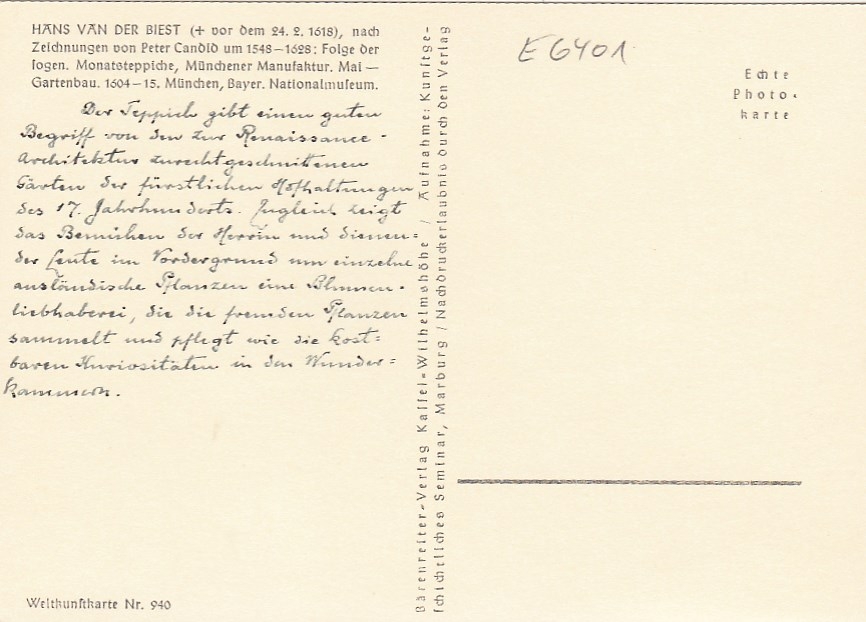 HANS VAN DER BIEST (+ vor dem 24. 2. 1618), nach
Zeichnungen von Peter Candid um 1548–1628: Folge der
sogen. Monatsteppiche, Münchener Manufaktur. Mai –
Gartenbau. 1604–15. München, Bayer. Nationalmuseum.
Der Teppich gibt einen guten
Begriff von den zur Renaissance-
Architektur zurechtgeschnittenen
Gärten der fürstlichen Hofhaltungen
des 17. Jahrhunderts. Zugleich zeigt
das Bemühen der Herrin und dienen=
der Leute im Vordergrund um einzelne
ausländische Pflanzen eine Blumen-
liebhaberei, die die fremden Pflanzen
sammelt und pflegt wie die kost=
baren Kuriositäten in den Wunder=
kammern.
Weltkunstkarte Nr. 940
Bärenreiter-Verlag Kassel-Wilhelmshöhe / Aufnahme: Kunstge-
schichtliches Seminar, Marburg / Nachdruckerlaubnis durch den Verlag
E 6401
Echte
Photo-
karte